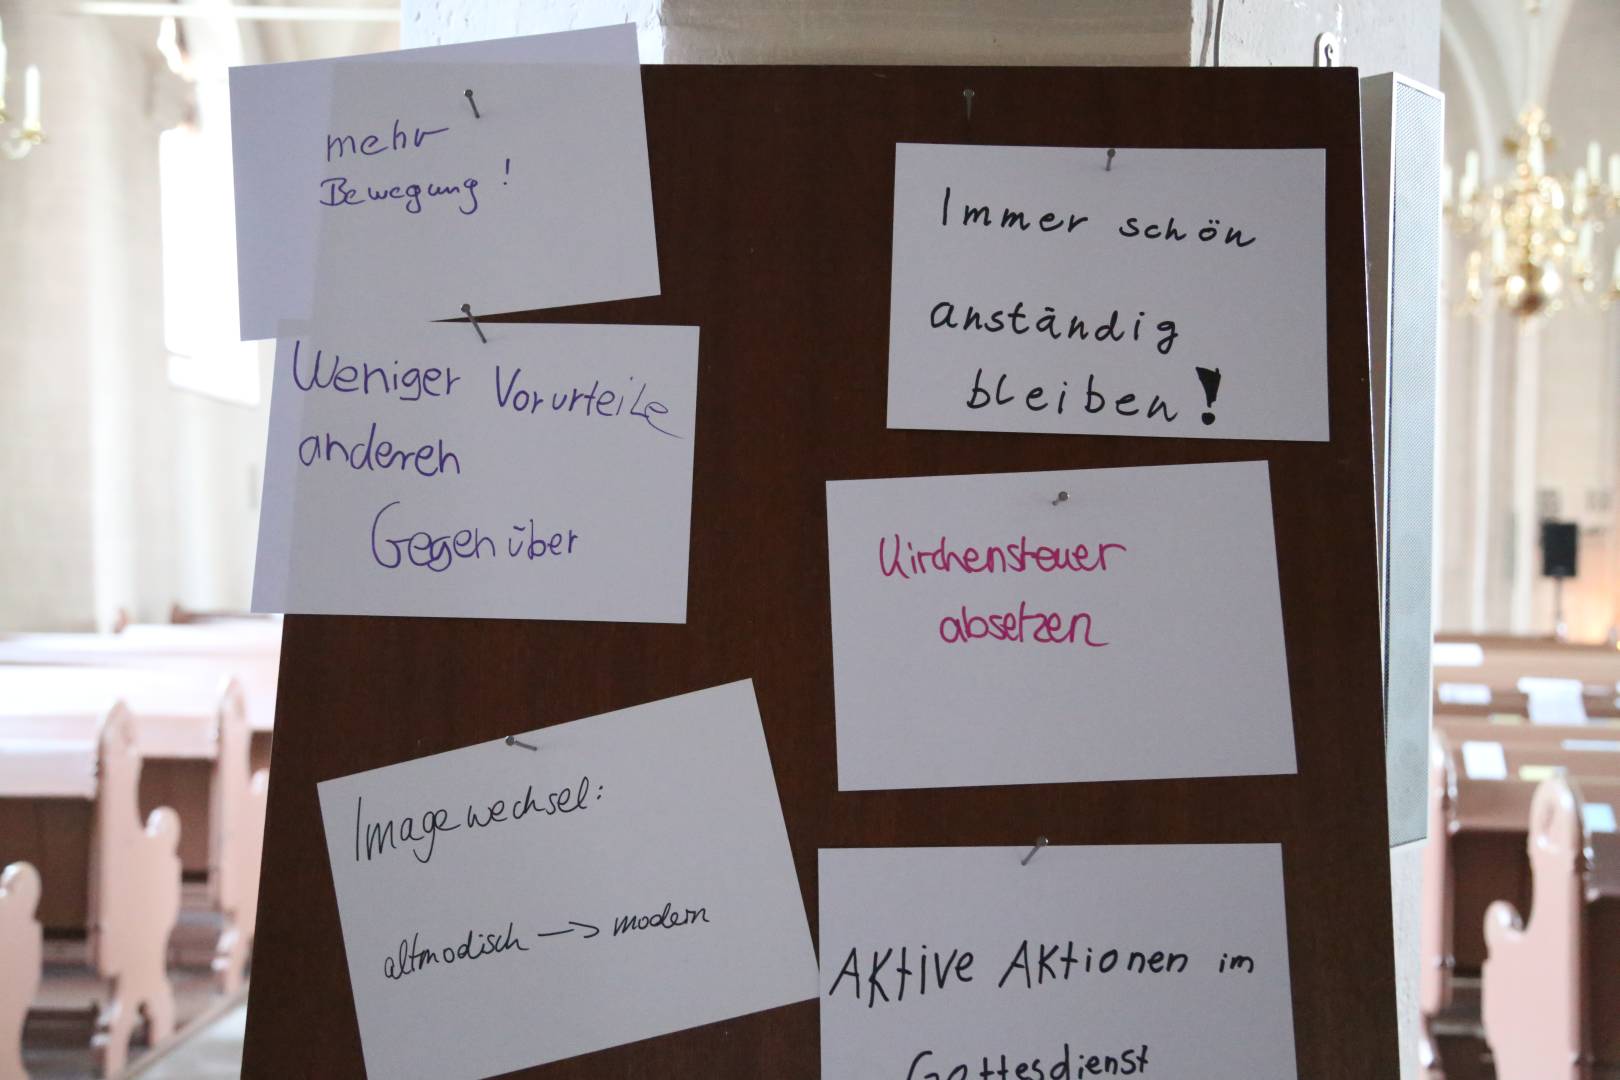 mehr
Bewegung!
Weniger Vorurteile
anderen
Gegenüber
Imagewechsel:
altmodisch → modern
Immer schön
anständig
bleiben!
Kirchensteuer
absetzen
Aktive Aktionen im
Gottesdienst